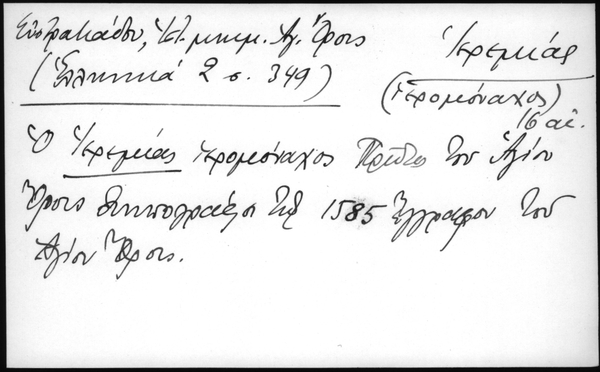 Εὐστρατιάδου, Ἱστ. μνημ. Ἁγ. Ὄρους
(Ἑλληνικά 2 σ. 349)
Ἱερεμίας
(ἱερομόναχος)
16 αἰ.
Ὁ Ἱερεμίας ἱερομόναχος Πρῶτος τοῦ Ἁγίου
Ὄρους ὑπογράφει τῷ 1585 ἔγγραφον τοῦ
Ἁγίου Ὄρους.